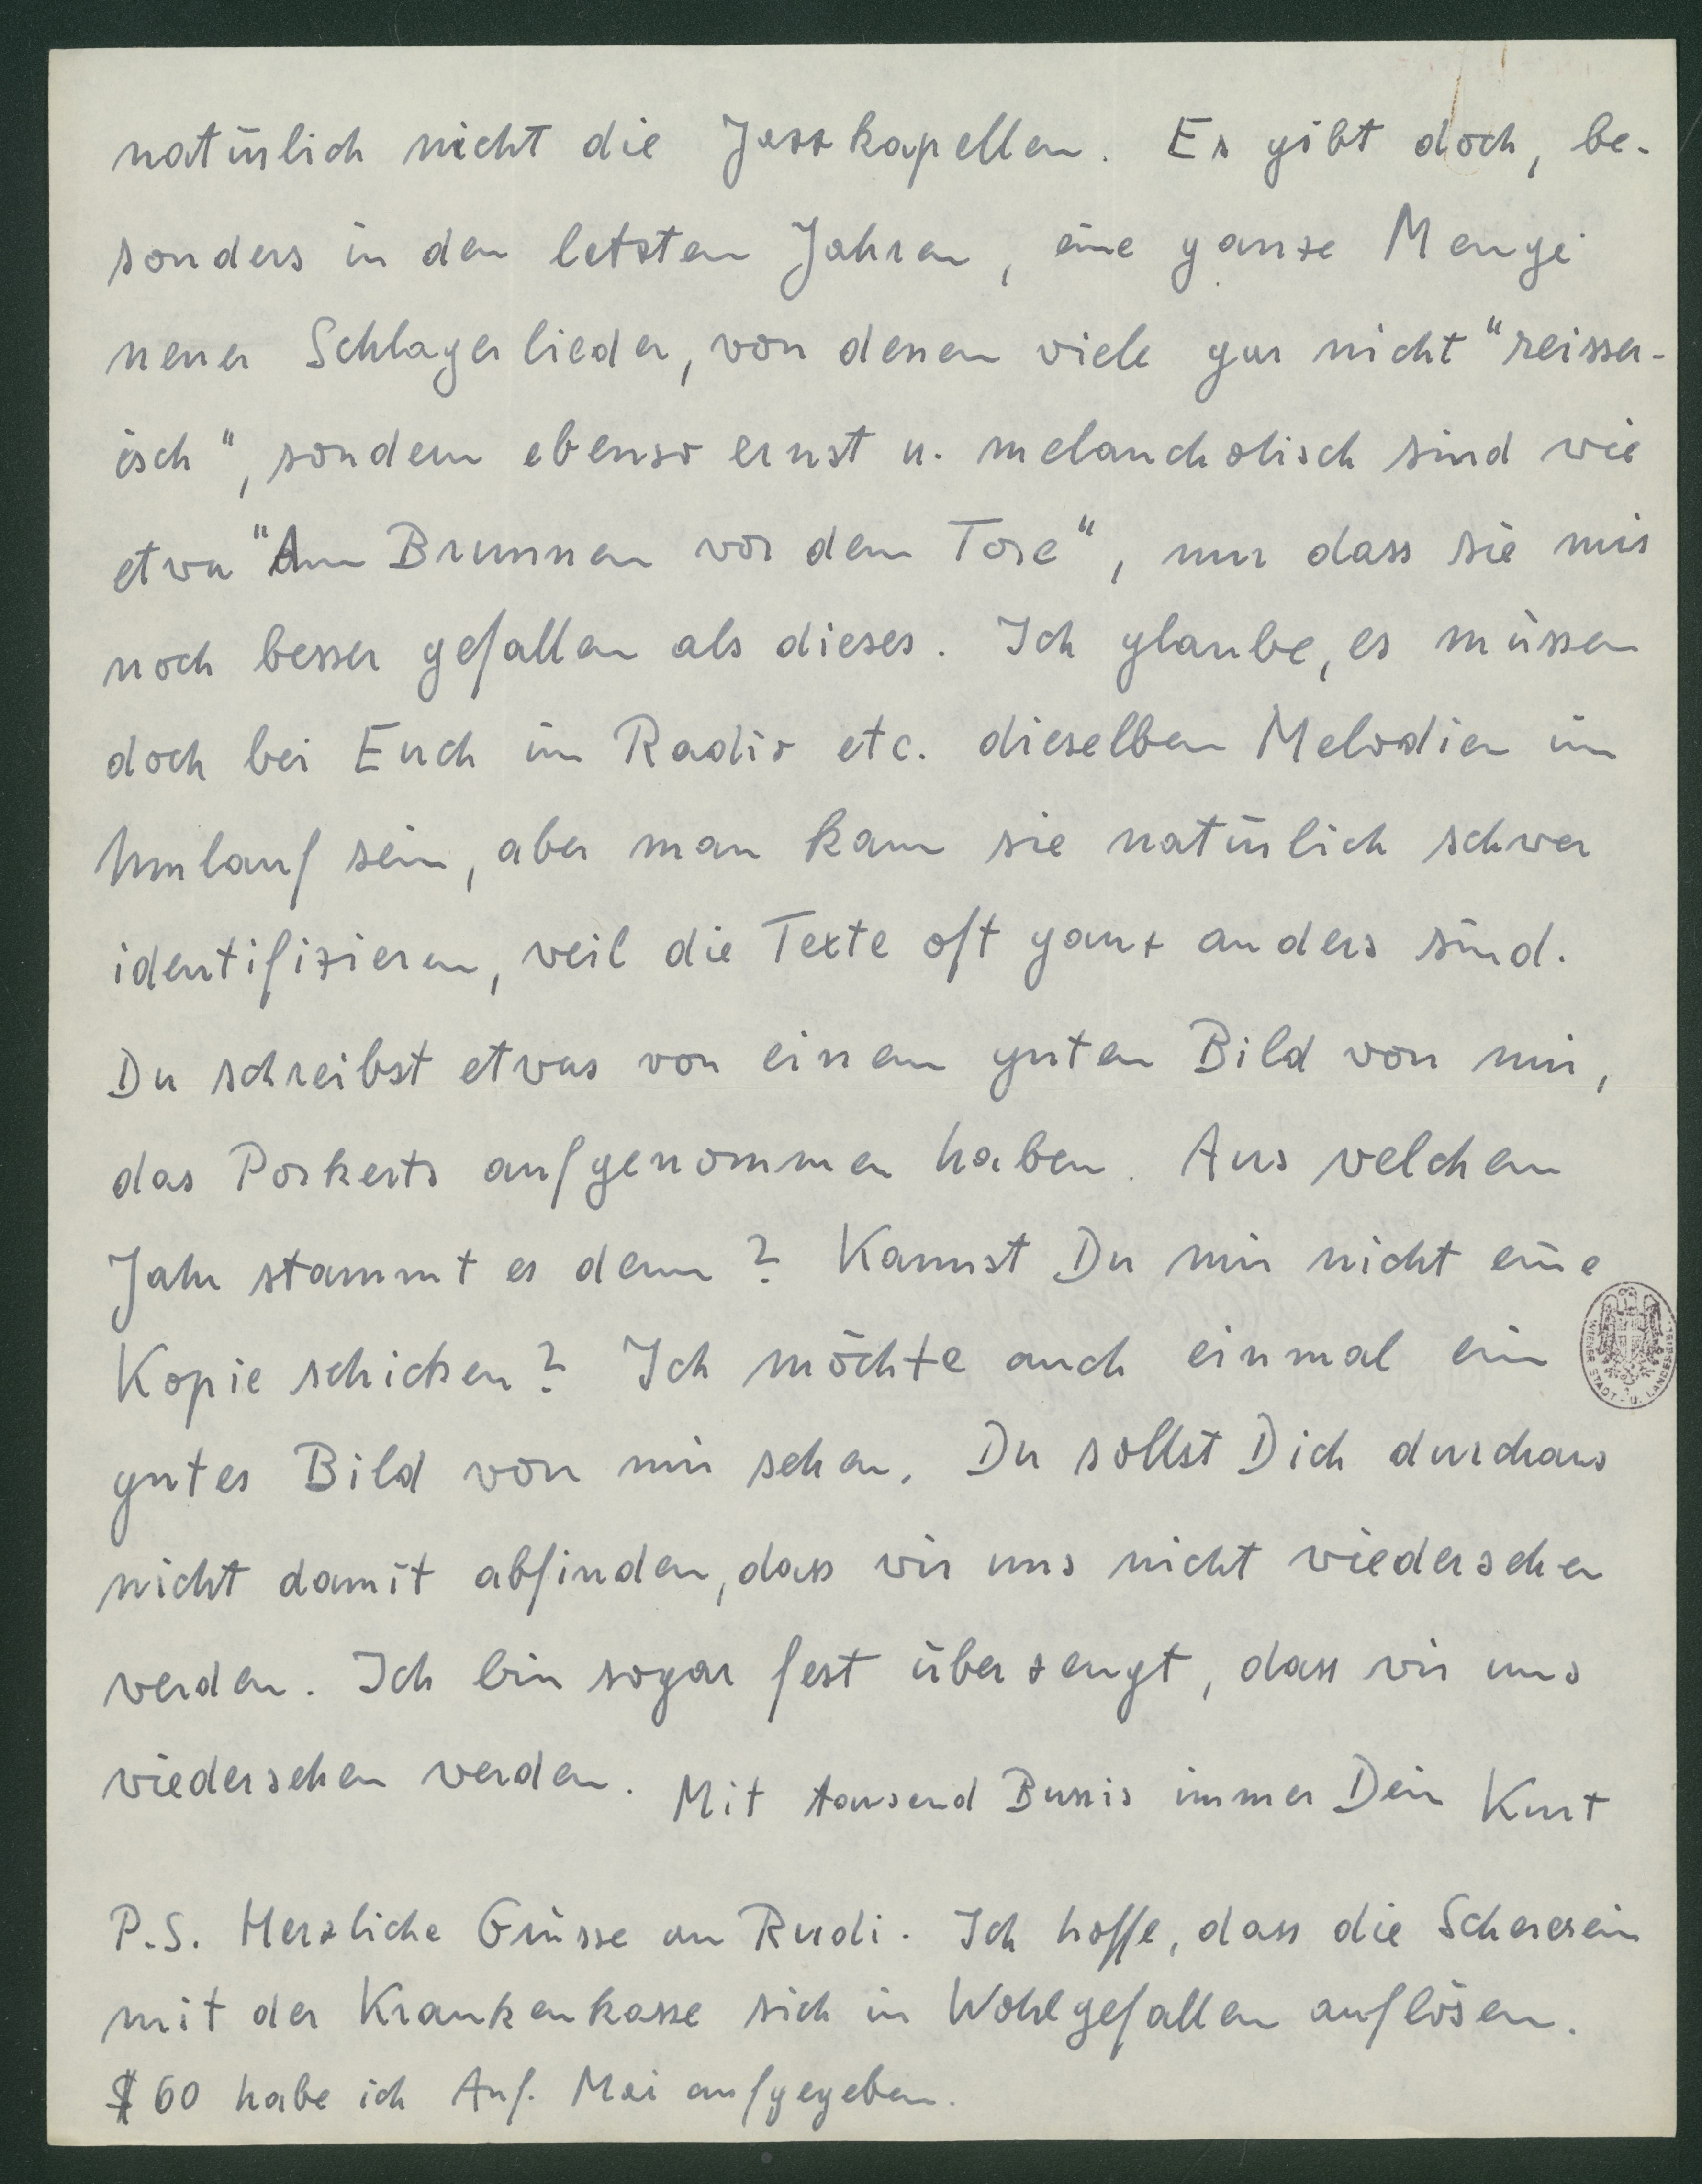 natürlich nicht die Jazzkapellen. Es gibt doch, be-
sonders in den letzten Jahren, eine ganze Menge
neuer Schlagerlieder, von denen viele gar nicht "reisser-
isch", sondern ebenso ernst u. melancholisch sind wie
etwa "Am Brunnen vor dem Tore", nur dass sie mir
noch besser gefallen als dieses. Ich glaube, es müssen
doch bei Euch im Radio etc. dieselben Melodien im
Umlauf sein, aber man kann sie natürlich schwer
identifizieren, weil die Texte oft ganz anders sind.
Du schreibst etwas von einem guten Bild von mir,
das Porkerts aufgenommen haben. Aus welchem
Jahr stammt es denn? Kannst Du mir nicht eine
Kopie schicken? Ich möchte auch einmal ein
gutes Bild von mir sehen. Du sollst Dich durchaus
nicht damit abfinden, dass wir uns nicht wiedersehen
werden. Ich bin sogar fest überzeugt, dass wir uns
wiedersehen werden. Mit tausend Bussis immer Dein Kurt
P.S. Herzliche Grüsse an Rudi. Ich hoffe, dass die Scherereien
mit der Krankenkasse sich in Wohlgefallen auflösen.
$ 60 habe ich Anf. Mai aufgegeben.
WIENER STADT- U. LANDES